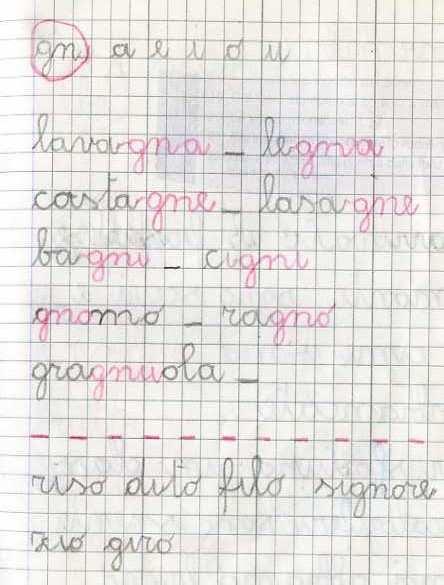 gn a e i o u
lavagna - legna
castagne - lasagne
bagni - cigni
gnomo - ragno
gragnuola -
riso dito filo signore
zio giro